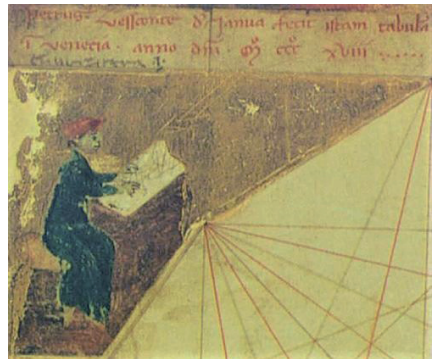 Petrus vessconte d' Janua fecit istam tabulã
ĩ venecia · anno dñi · Mº cccº xviii